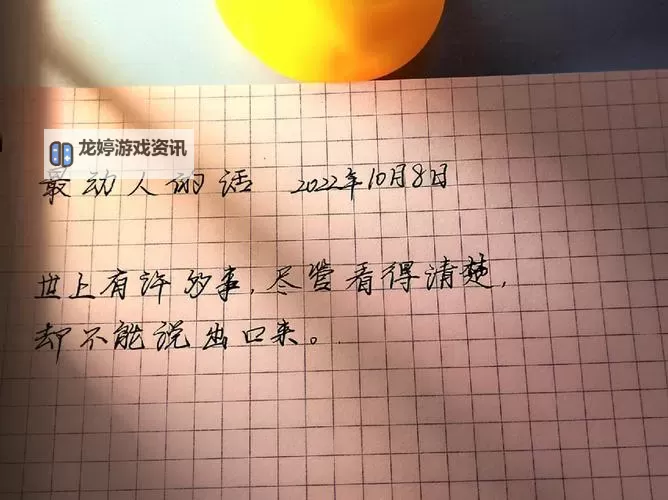 龙婷游戏资讯
最动人的话 2022年10月8日
世上有许多事,尽管看得清楚,
却不能说出口来。